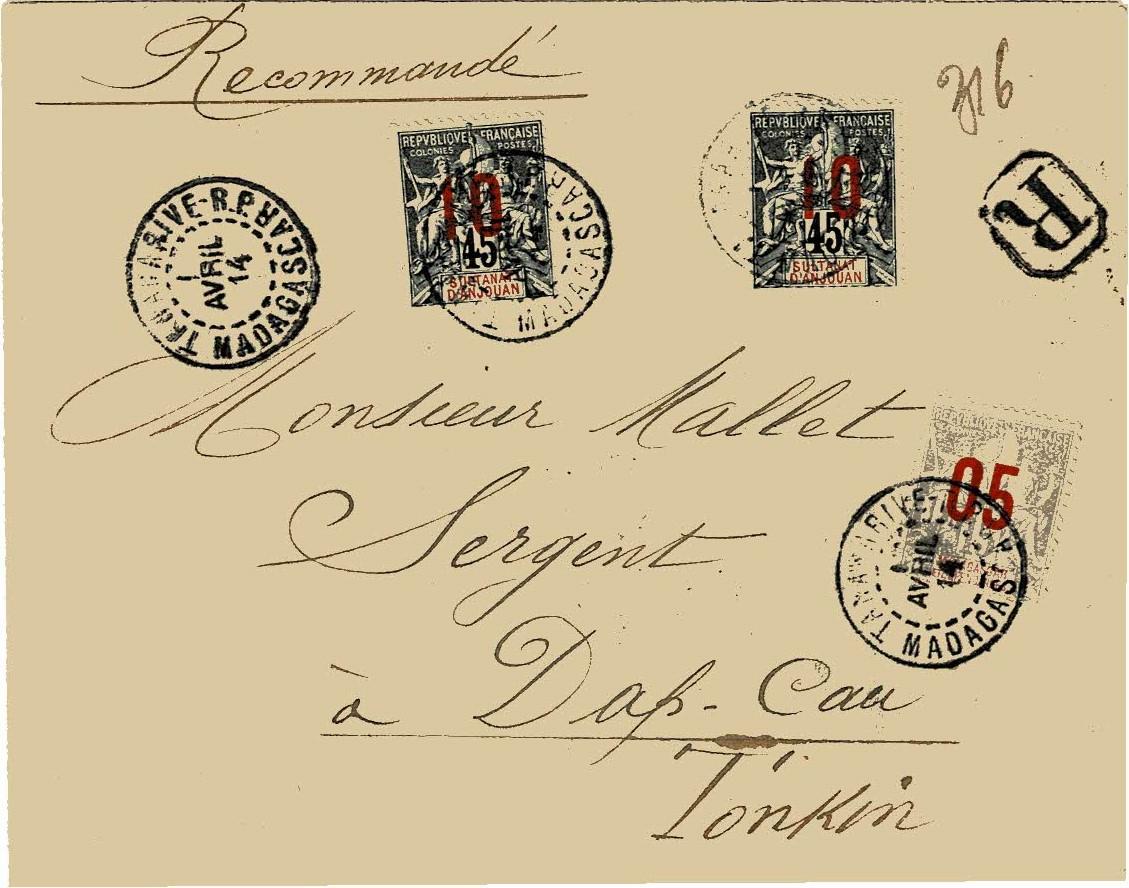 Recommandé
316
R
REPVBLIQVE FRANÇAISE
COLONIES POSTES
10
45
SULTANAT
D'ANJOUAN
REPVBLIQVE FRANÇAISE
COLONIES POSTES
10
45
SULTANAT
D'ANJOUAN
TANANARIVE-R.P.
1
AVRIL
14
MADAGASCAR
MADAGASCAR
Monsieur Mallet
REPVBLIQVE FRANÇAISE
05
Sergent
TANANARIVE
1
AVRIL
14
MADAGASCAR
à Dap-Cau
Tonkin